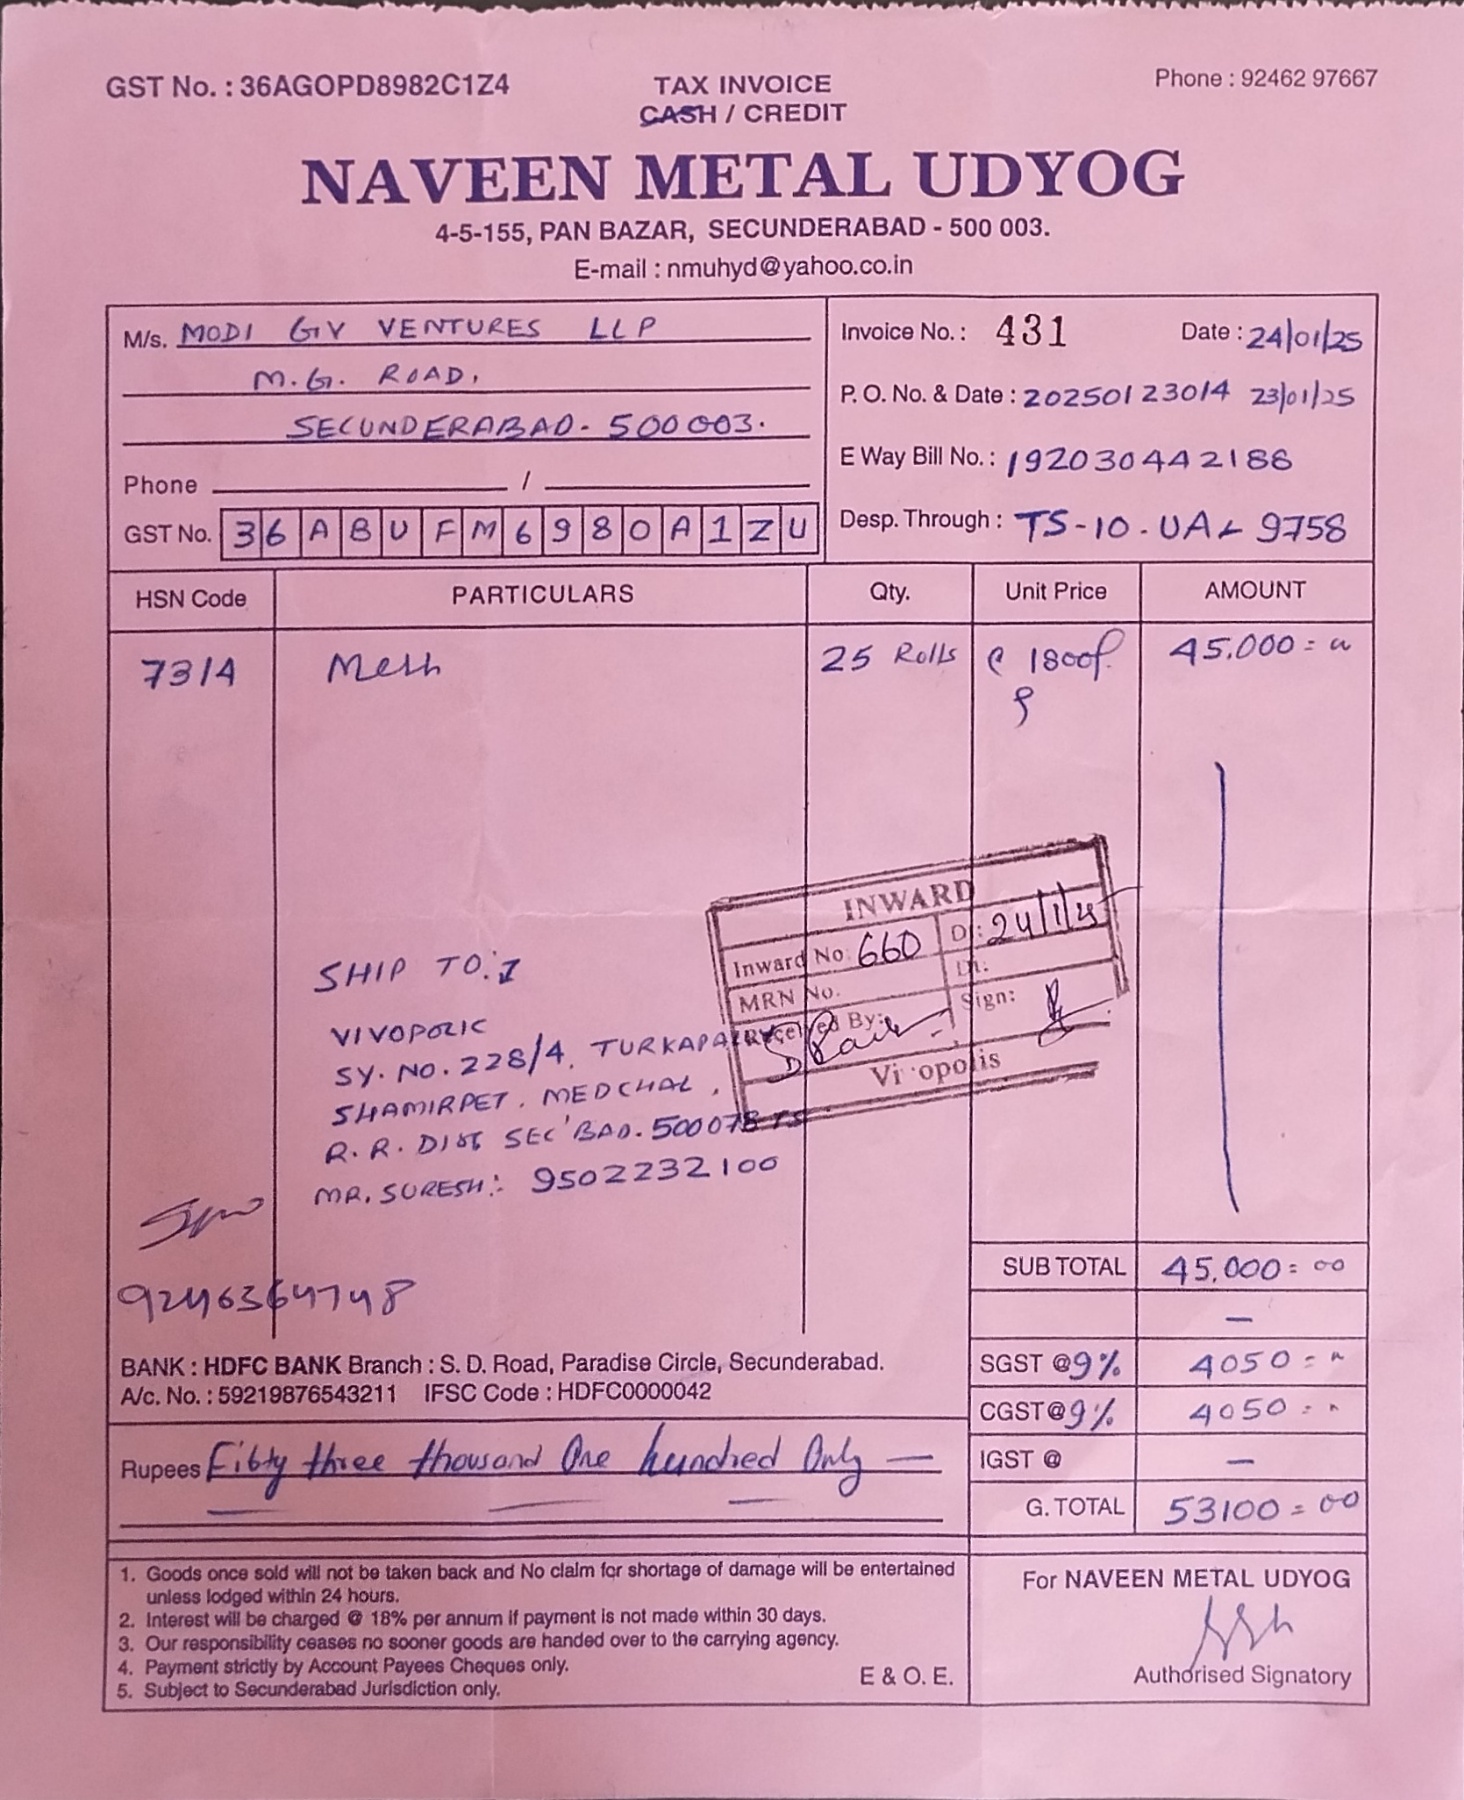 GST No. : 36AGOPD8982C1Z4
TAX INVOICE
CASH / CREDIT
Phone : 92462 97667
NAVEEN METAL UDYOG
4-5-155, PAN BAZAR, SECUNDERABAD - 500 003.
E-mail : nmuhyd@yahoo.co.in
M/s. MODI GV VENTURES LLP
M.G. ROAD,
SECUNDERABAD - 500003.
Phone /
GST No. 36ABUFM6980A1ZU
Invoice No. : 431 Date : 24/01/25
P. O. No. & Date : 20250123014 23/01/25
E Way Bill No. : 192030442188
Desp. Through : TS-10-UA 9758
HSN Code PARTICULARS Qty. Unit Price AMOUNT
7314 Mesh 25 Rolls @ 1800/- 45.000 =
INWARD
Inward No: 660 Dt: 24/1/25
MRN No. Dt:
Received By: Sign:
Vi opolis
SHIP TO:
VIVOPOLIC
SY. NO. 228/4, TURKAPALLY
SHAMIRPET. MEDCHAL,
R. R. DIST SEC'BAD. 500078 TS
MR. SURESH: 9502232100
9246364748
SUB TOTAL 45.000 = 00
—
SGST @ 9% 4050 = "
CGST @ 9% 4050 = "
IGST @ —
G. TOTAL 53100 = 00
BANK : HDFC BANK Branch : S. D. Road, Paradise Circle, Secunderabad.
A/c. No. : 59219876543211 IFSC Code : HDFC0000042
Rupees Fifty three thousand One hundred Only —
1. Goods once sold will not be taken back and No claim for shortage of damage will be entertained
unless lodged within 24 hours.
2. Interest will be charged @ 18% per annum if payment is not made within 30 days.
3. Our responsibility ceases no sooner goods are handed over to the carrying agency.
4. Payment strictly by Account Payees Cheques only.
5. Subject to Secunderabad Jurisdiction only.
E & O. E.
For NAVEEN METAL UDYOG
Authorised Signatory